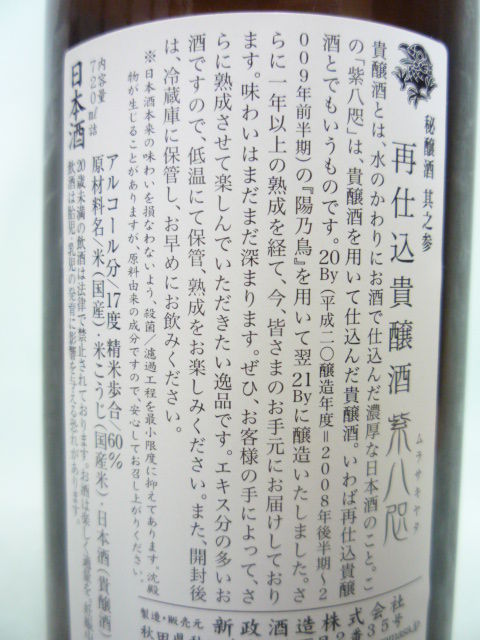 秘醸酒 其之参
再仕込貴醸酒 紫八咫
ムラサキヤタ
貴醸酒とは、水のかわりにお酒で仕込んだ濃厚な日本酒のこと。こ
の「紫八咫」は、貴醸酒を用いて仕込んだ貴醸酒。いわば再仕込貴醸
酒とでもいうものです。20By（平成二〇醸造年度＝2008年後半期～2
009年前半期）の『陽乃鳥』を用いて翌21Byに醸造いたしました。さ
らに一年以上の熟成を経て、今、皆さまのお手元にお届けしており
ます。味わいはまだまだ深まります。ぜひ、お客様の手によって、さ
らに熟成させて楽しんでいただきたい逸品です。エキス分の多いお
酒ですので、低温にて保管、熟成をお楽しみください。また、開封後
は、冷蔵庫に保管し、お早めにお飲みください。
※日本酒本来の味わいを損なわないよう、殺菌／濾過工程を最小限度に抑えてあります。沈殿
物が生じることがありますが、原料由来の成分ですので、安心してお召し上がりください。
アルコール分／17度 精米歩合／60％
原材料名／米（国産）・米こうじ（国産米）・日本酒（貴醸酒）
20歳未満の飲酒は法律で禁止されております。お酒は楽しく適量を。妊娠
飲酒は胎児・乳児の発育に影響を与える恐れがあります。
内容量
720㎖詰
日本酒
製造・販売元 新政酒造株式会社
秋田県